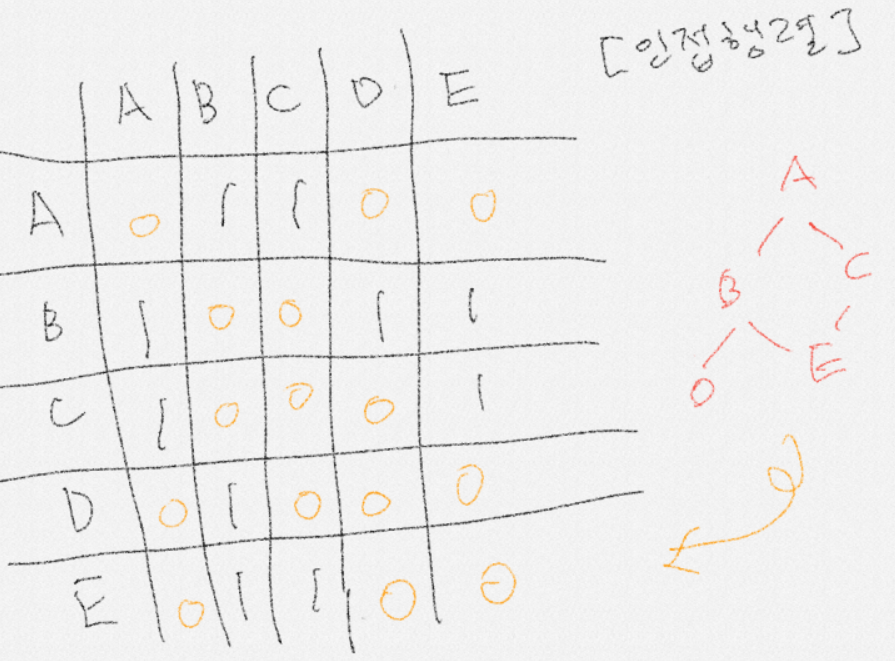 [인접행렬]
A B C D E
A 0 1 1 0 0
B 1 0 0 1 1
C 1 0 0 0 1
D 0 1 0 0 0
E 0 1 1 0 0
A
B C
D E